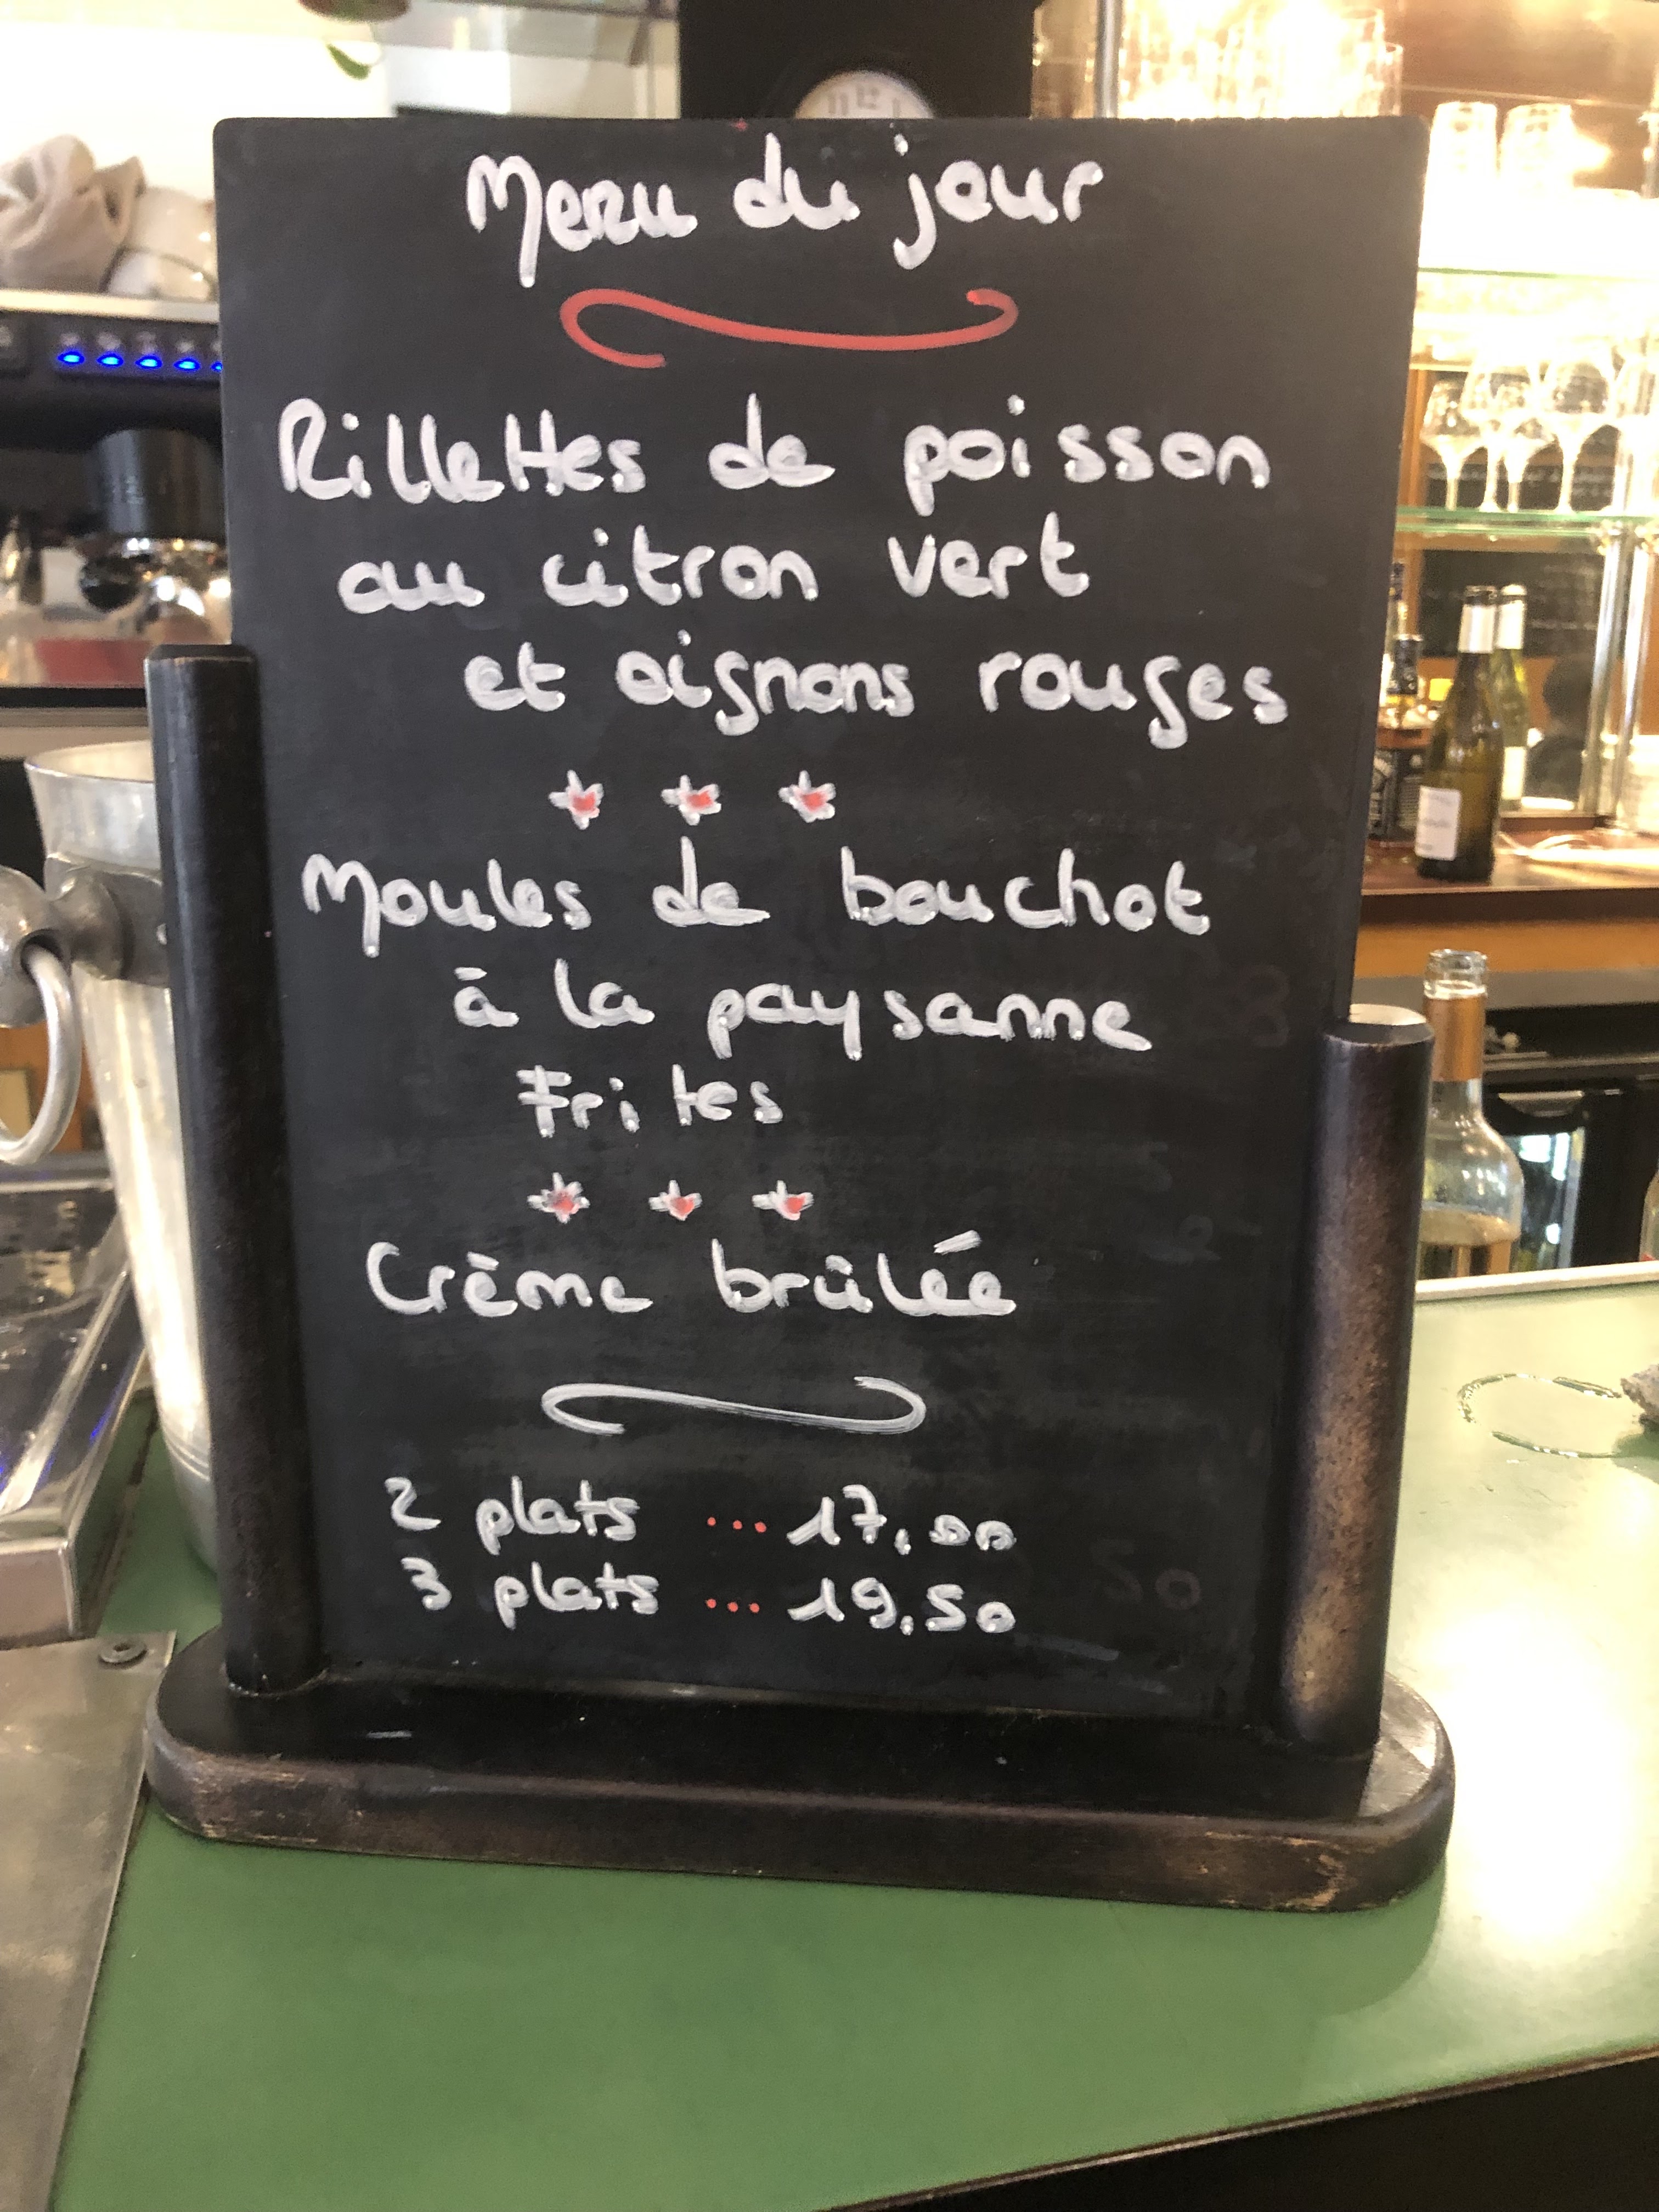 Menu du jour
Rillettes de poisson
au citron vert
et oignons rouges
Moules de bouchot
à la paysanne
Frites
Crème brûlée
2 plats ... 17,00
3 plats ... 19,50